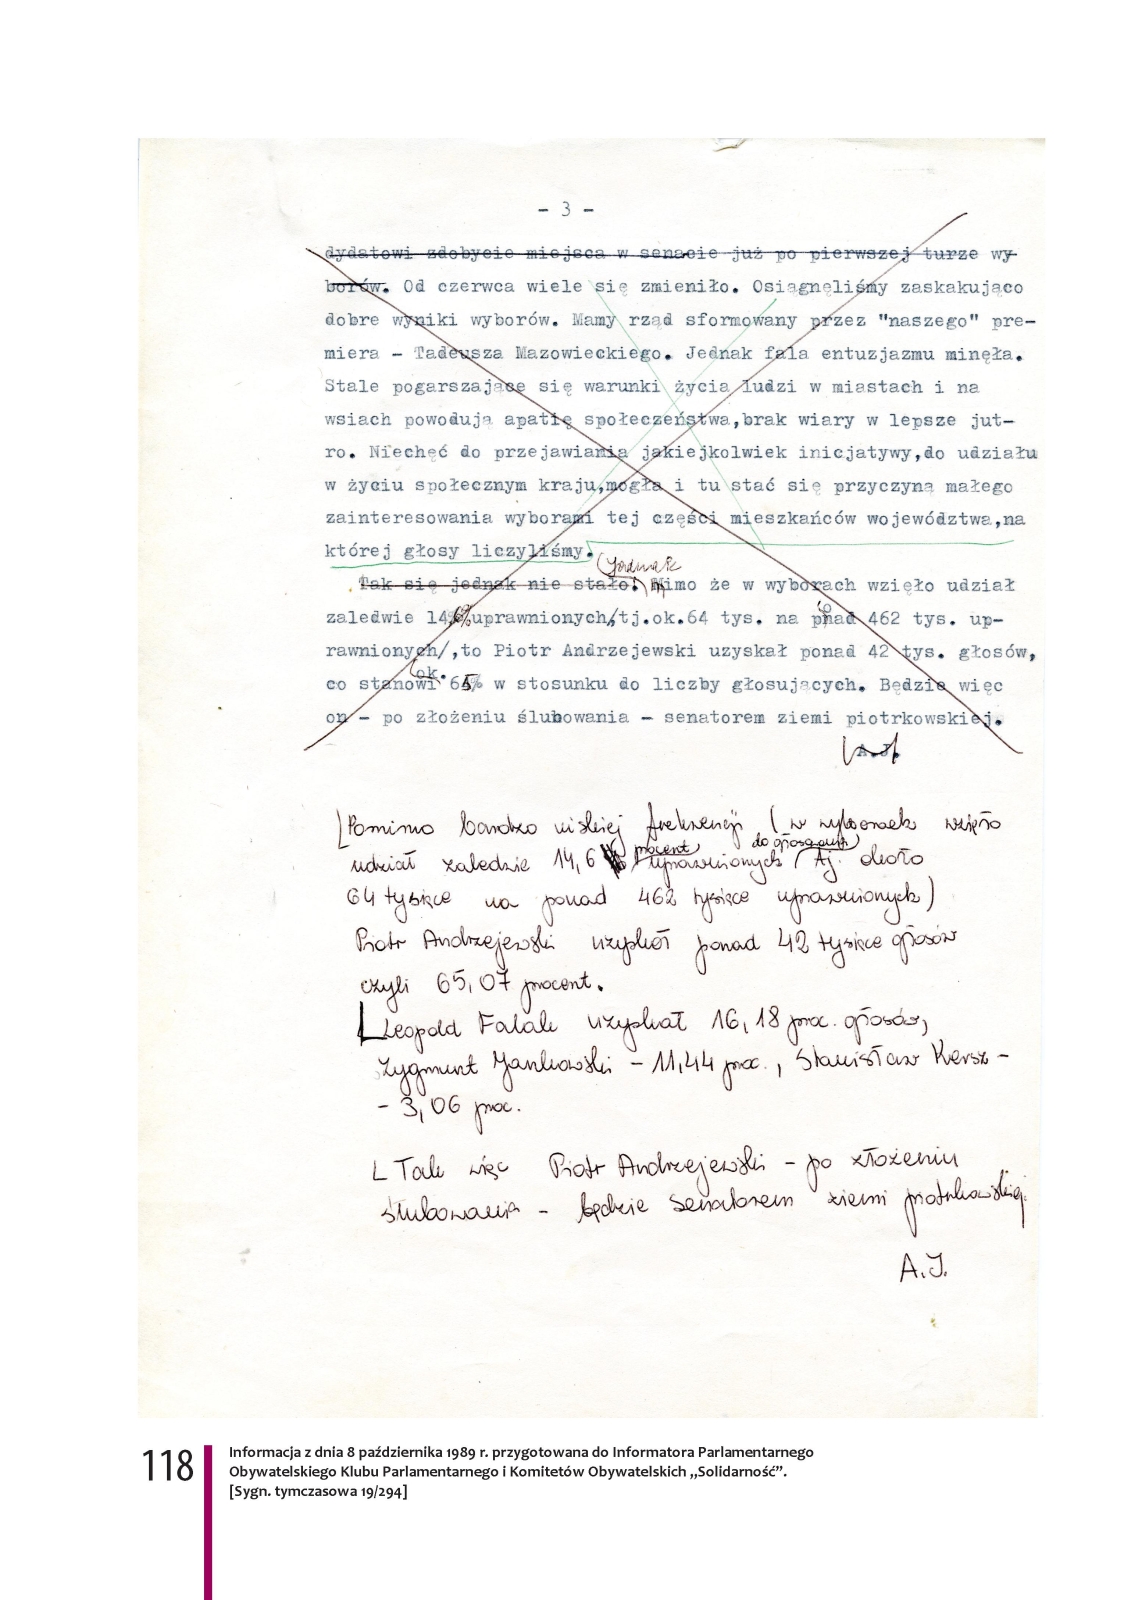 - 3 -
dydatowi zdobycie miejsca w senacie już po pierwszej turze wy-
borów. Od czerwca wiele się zmieniło. Osiągnęliśmy zaskakująco
dobre wyniki wyborów. Mamy rząd sformowany przez "naszego" pre-
miera - Tadeusza Mazowieckiego. Jednak fala entuzjazmu minęła.
Stale pogarszające się warunki życia ludzi w miastach i na
wsiach powodują apatię społeczeństwa,brak wiary w lepsze jut-
ro. Niechęć do przejawiania jakiejkolwiek inicjatywy,do udziału
w życiu społecznym kraju,mogła i tu stać się przyczyną małego
zainteresowania wyborami tej części mieszkańców województwa,na
której głosy liczyliśmy.
Jednak
Tak się jednak nie stało! Mimo że w wyborach wzięło udział
zaledwie 14,6% uprawnionych/tj.ok.64 tys. na ponad 462 tys. up-
rawnionych/,to Piotr Andrzejewski uzyskał ponad 42 tys. głosów,
co stanowi ok. 65% w stosunku do liczby głosujących. Będzie więc
on - po złożeniu ślubowania - senatorem ziemi piotrkowskiej.
A.J.
Pomimo bardzo niskiej frekwencji (w wyborach wzięło
udział zaledzie 14,6 procent uprawnionych do głosowania tj. około
64 tysiące na ponad 462 tysiące uprawnionych)
Piotr Andrzejewski uzyskał ponad 42 tysiące głosów
czyli 65,07 procent.
Leopold Falak uzyskał 16,18 proc. głosów,
Zygmunt Jankowski - 11,44 proc., Stanisław Kersz -
- 3,06 proc.
Tak więc Piotr Andrzejewski - po złożeniu
ślubowania - będzie senatorem ziemi piotrkowskiej.
A.J.
118
Informacja z dnia 8 października 1989 r. przygotowana do Informatora Parlamentarnego
Obywatelskiego Klubu Parlamentarnego i Komitetów Obywatelskich „Solidarność”.
[Sygn. tymczasowa 19/294]